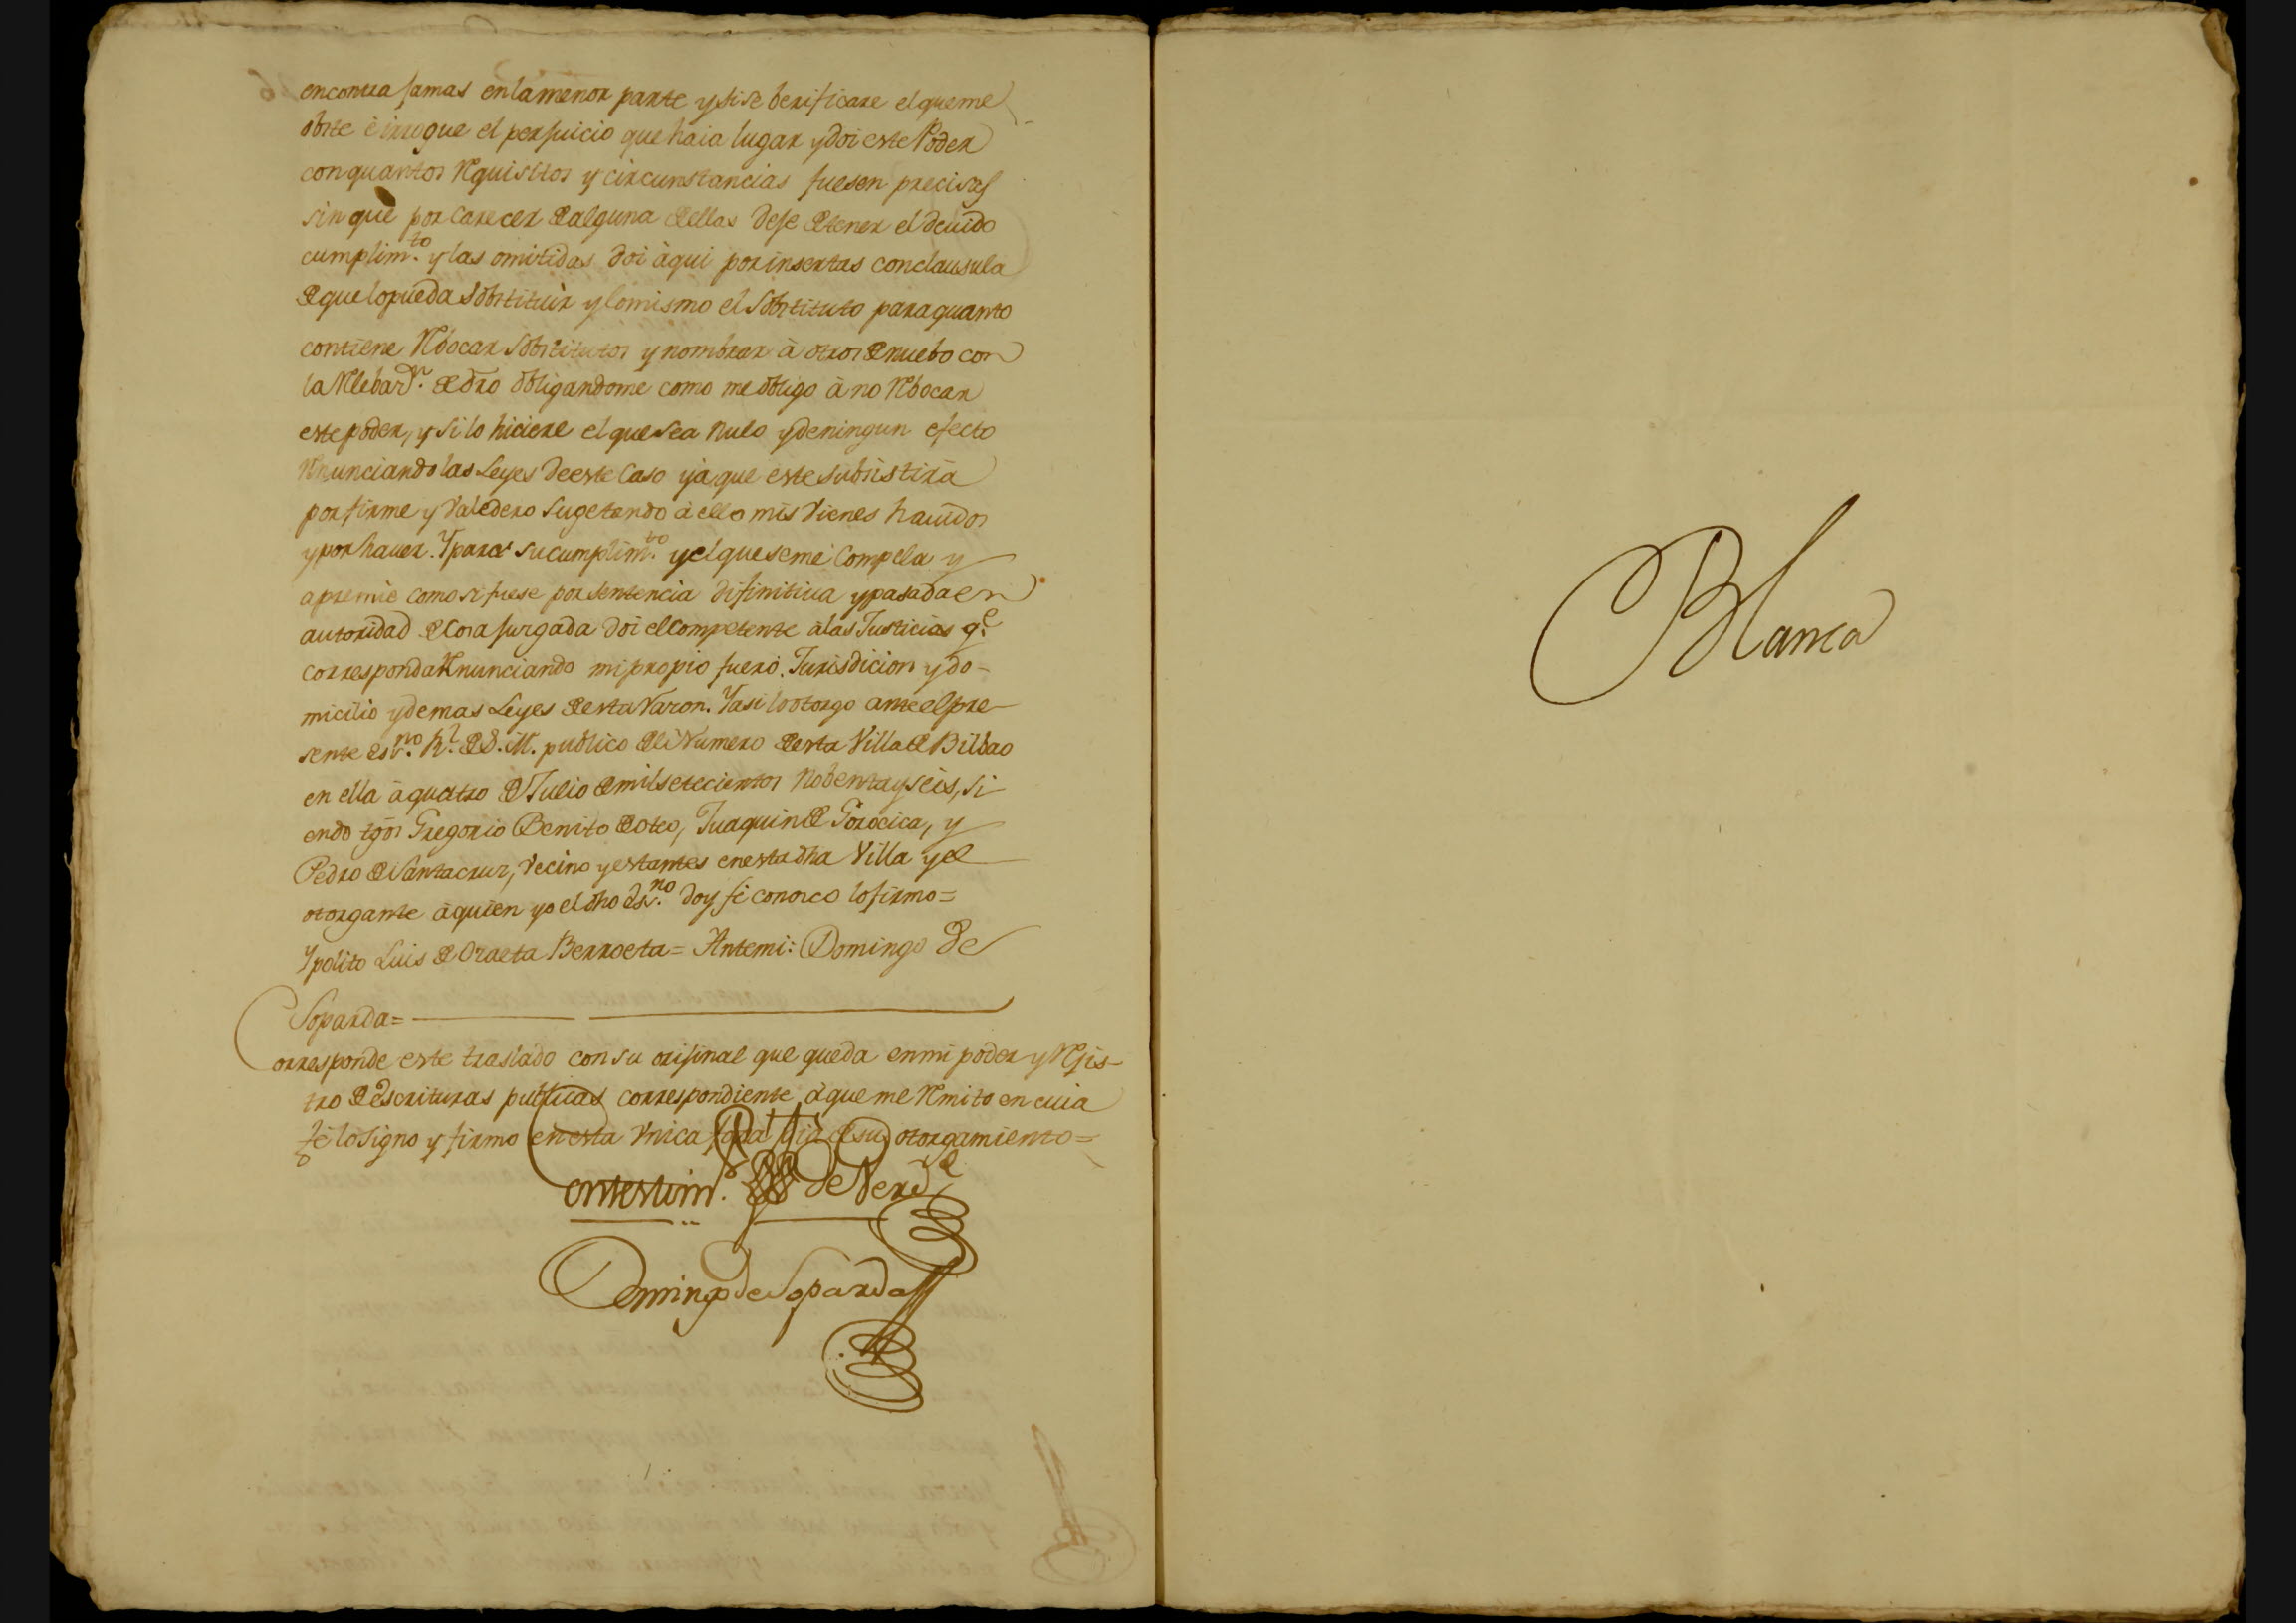 en contra jamas en la menor parte y si se berificare el que me
obste è irrogue el perjuicio que haia lugar y doi este Poder
con quantos Requisitos y circunstancias fuesen precisas
sin que por Carecer de alguna de ellas deje de tener el deuido
cumplim.to y las omitidas doi àqui por insertas con clausula
de que lo pueda sobstituìr y lo mismo el Sobstituto para quanto
contiene Rebocar Sobstitutos y nombrar à otros de nuebo con
la Relebaz.n de dro obligandome como me obligo à no Rebocar
este poder, y si lo hiciere el que sea nulo y de ningun efecto
Renunciando las Leyes de este Caso y à que este subsistirà
por firme y Valedero sugetando à ello mis Vienes hauidos
y por hauer. Y para su cumplim.to y el que se me Compela y
apremie como si fuese por sentencia difinitiua y pasada en
autoridad de Cosa Jurgada doi el Competente à las Justicias q.e
corresponda Renunciando mi propio fuero, Jurisdicion y do-
micilio y demas Leyes de esta Razon. Y asi lo otorgo ante el pre-
sente esv.no R.l de S. M. publico del Numero de esta Villa de Bilbao
en ella à quatro de Julio de mil setecientos Nobenta y seis, si-
endo tgos Gregorio Benito de Oteo, Juaquin de Gorocica, y
Pedro de Santacruz, Vecino y estantes en esta dha Villa y el
otorgante à quien yo el dho esv.no doy fe conozco lo firmo=
Ypolito Luis de Oraeta Berroeta= Ante mi: Domingo de
Soparda=
Corresponde este traslado con su orijinal que queda en mi poder y Rejis-
tro de escrituras publicas correspondiente, à que me Remito en cuia
fè lo signo y firmo en esta Vnica foja dia de su otorgamiento=
en testim.o de Verd.d
Domingo de Soparda
Blanca